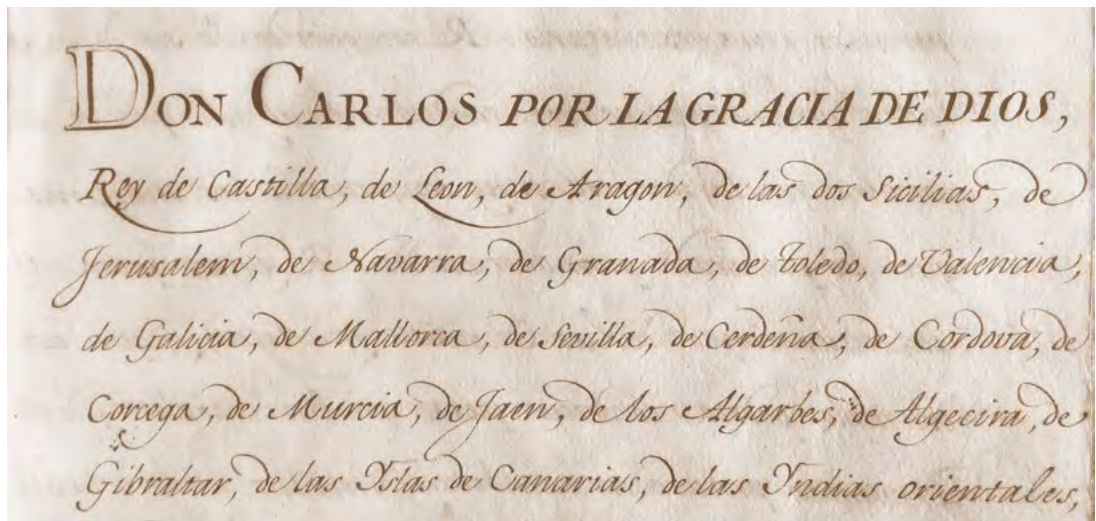 DON CARLOS POR LA GRACIA DE DIOS,
Rey de Castilla, de Leon, de Aragon, de las dos Sicilias, de
Jerusalem, de Navarra, de Granada, de Toledo, de Valencia,
de Galicia, de Mallorca, de Sevilla, de Cerdeña, de Cordova, de
Corcega, de Murcia, de Jaen, de los Algarbes, de Algecira, de
Gibraltar, de las Yslas de Canarias, de las Yndias orientales,